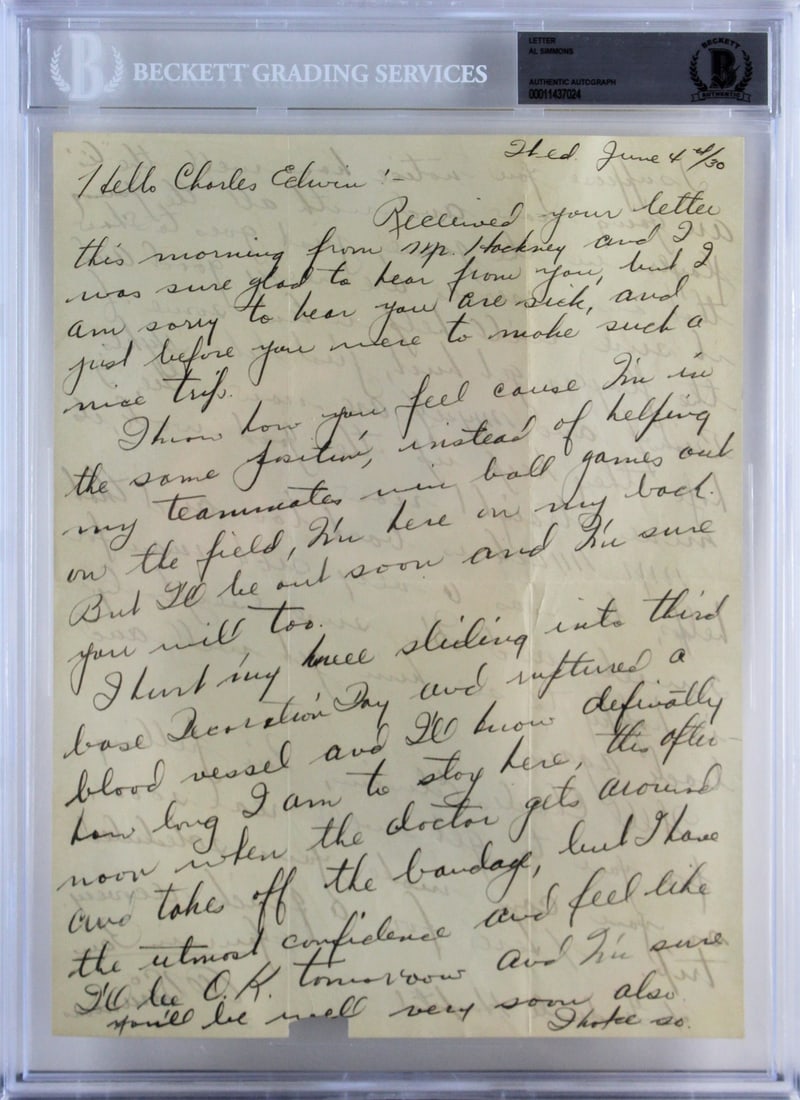 BECKETT GRADING SERVICES
LETTER
AL SIMMONS
AUTHENTIC AUTOGRAPH
00011437024
BECKETT
B
AUTHENTIC
Wed. June 4th/30
Hello Charles Edwin :-
Received your letter
this morning from Mr. Hackney and I
was sure glad to hear from you, but I
am sorry to hear you are sick, and
just before you were to make such a
nice trip.
I know how you feel cause I'm in
the same position, instead of helping
my teammates win ball games out
on the field, I'm here on my back.
But I'll be out soon and I'm sure
you will too.
I hurt my knee sliding into third
base Decoration Day and ruptured a
blood vessel and I'll know definatly
how long I am to stay here, this after-
noon when the doctor gets around
and takes off the bandage, but I have
the utmost confidence and feel like
I'll be O.K. tomorroow and I'm sure
you'll be well very soon also.
I hope so.